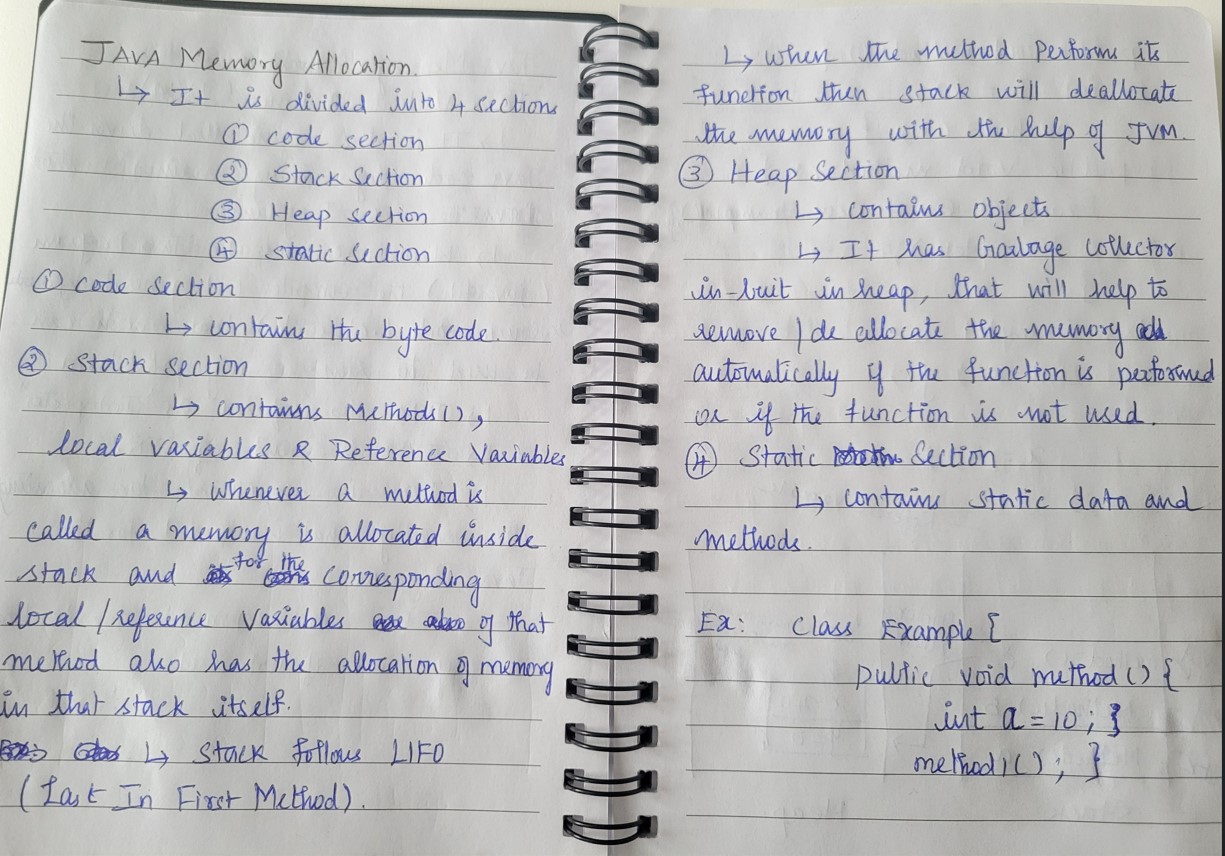 JAVA Memory Allocation.
↳ It is divided into 4 sections
① code section
② Stack Section
③ Heap section
④ static section
① code section
↳ contains the byte code.
② Stack section
↳ contains Methods(),
local variables & Reference Variables
↳ Whenever a method is
called a memory is allocated inside
stack and for the corresponding
local/reference variables of that
method also has the allocation of memory
in that stack itself.
↳ Stack follows LIFO
(Last In First Method).
↳ when the method performs its
function then stack will deallocate
the memory with the help of JVM.
③ Heap Section
↳ contains Objects
↳ It has Garbage collector
in-buit in heap, that will help to
remove/de allocate the memory
automatically if the function is performed
or if the function is not used.
④ Static Section
↳ contains static data and
methods.
Ex: Class Example [
public void method() {
int a = 10; }
method1(); }